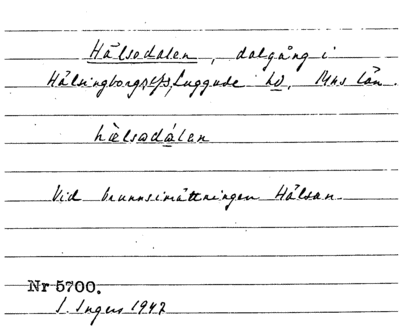 Hälsodalen, dalgång i
Hälsingborgs sfs, Luggude hd, Mhs län.
hèlsodálen
Vid brunnsinrättningen Hälsan.
Nr 5700.
I. Ingers 1947